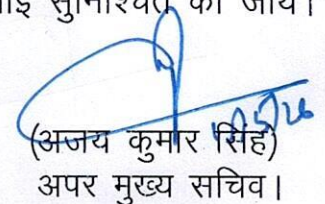 सुनिश्चित की जाय।
(अजय कुमार सिंह)
अपर मुख्य सचिव।